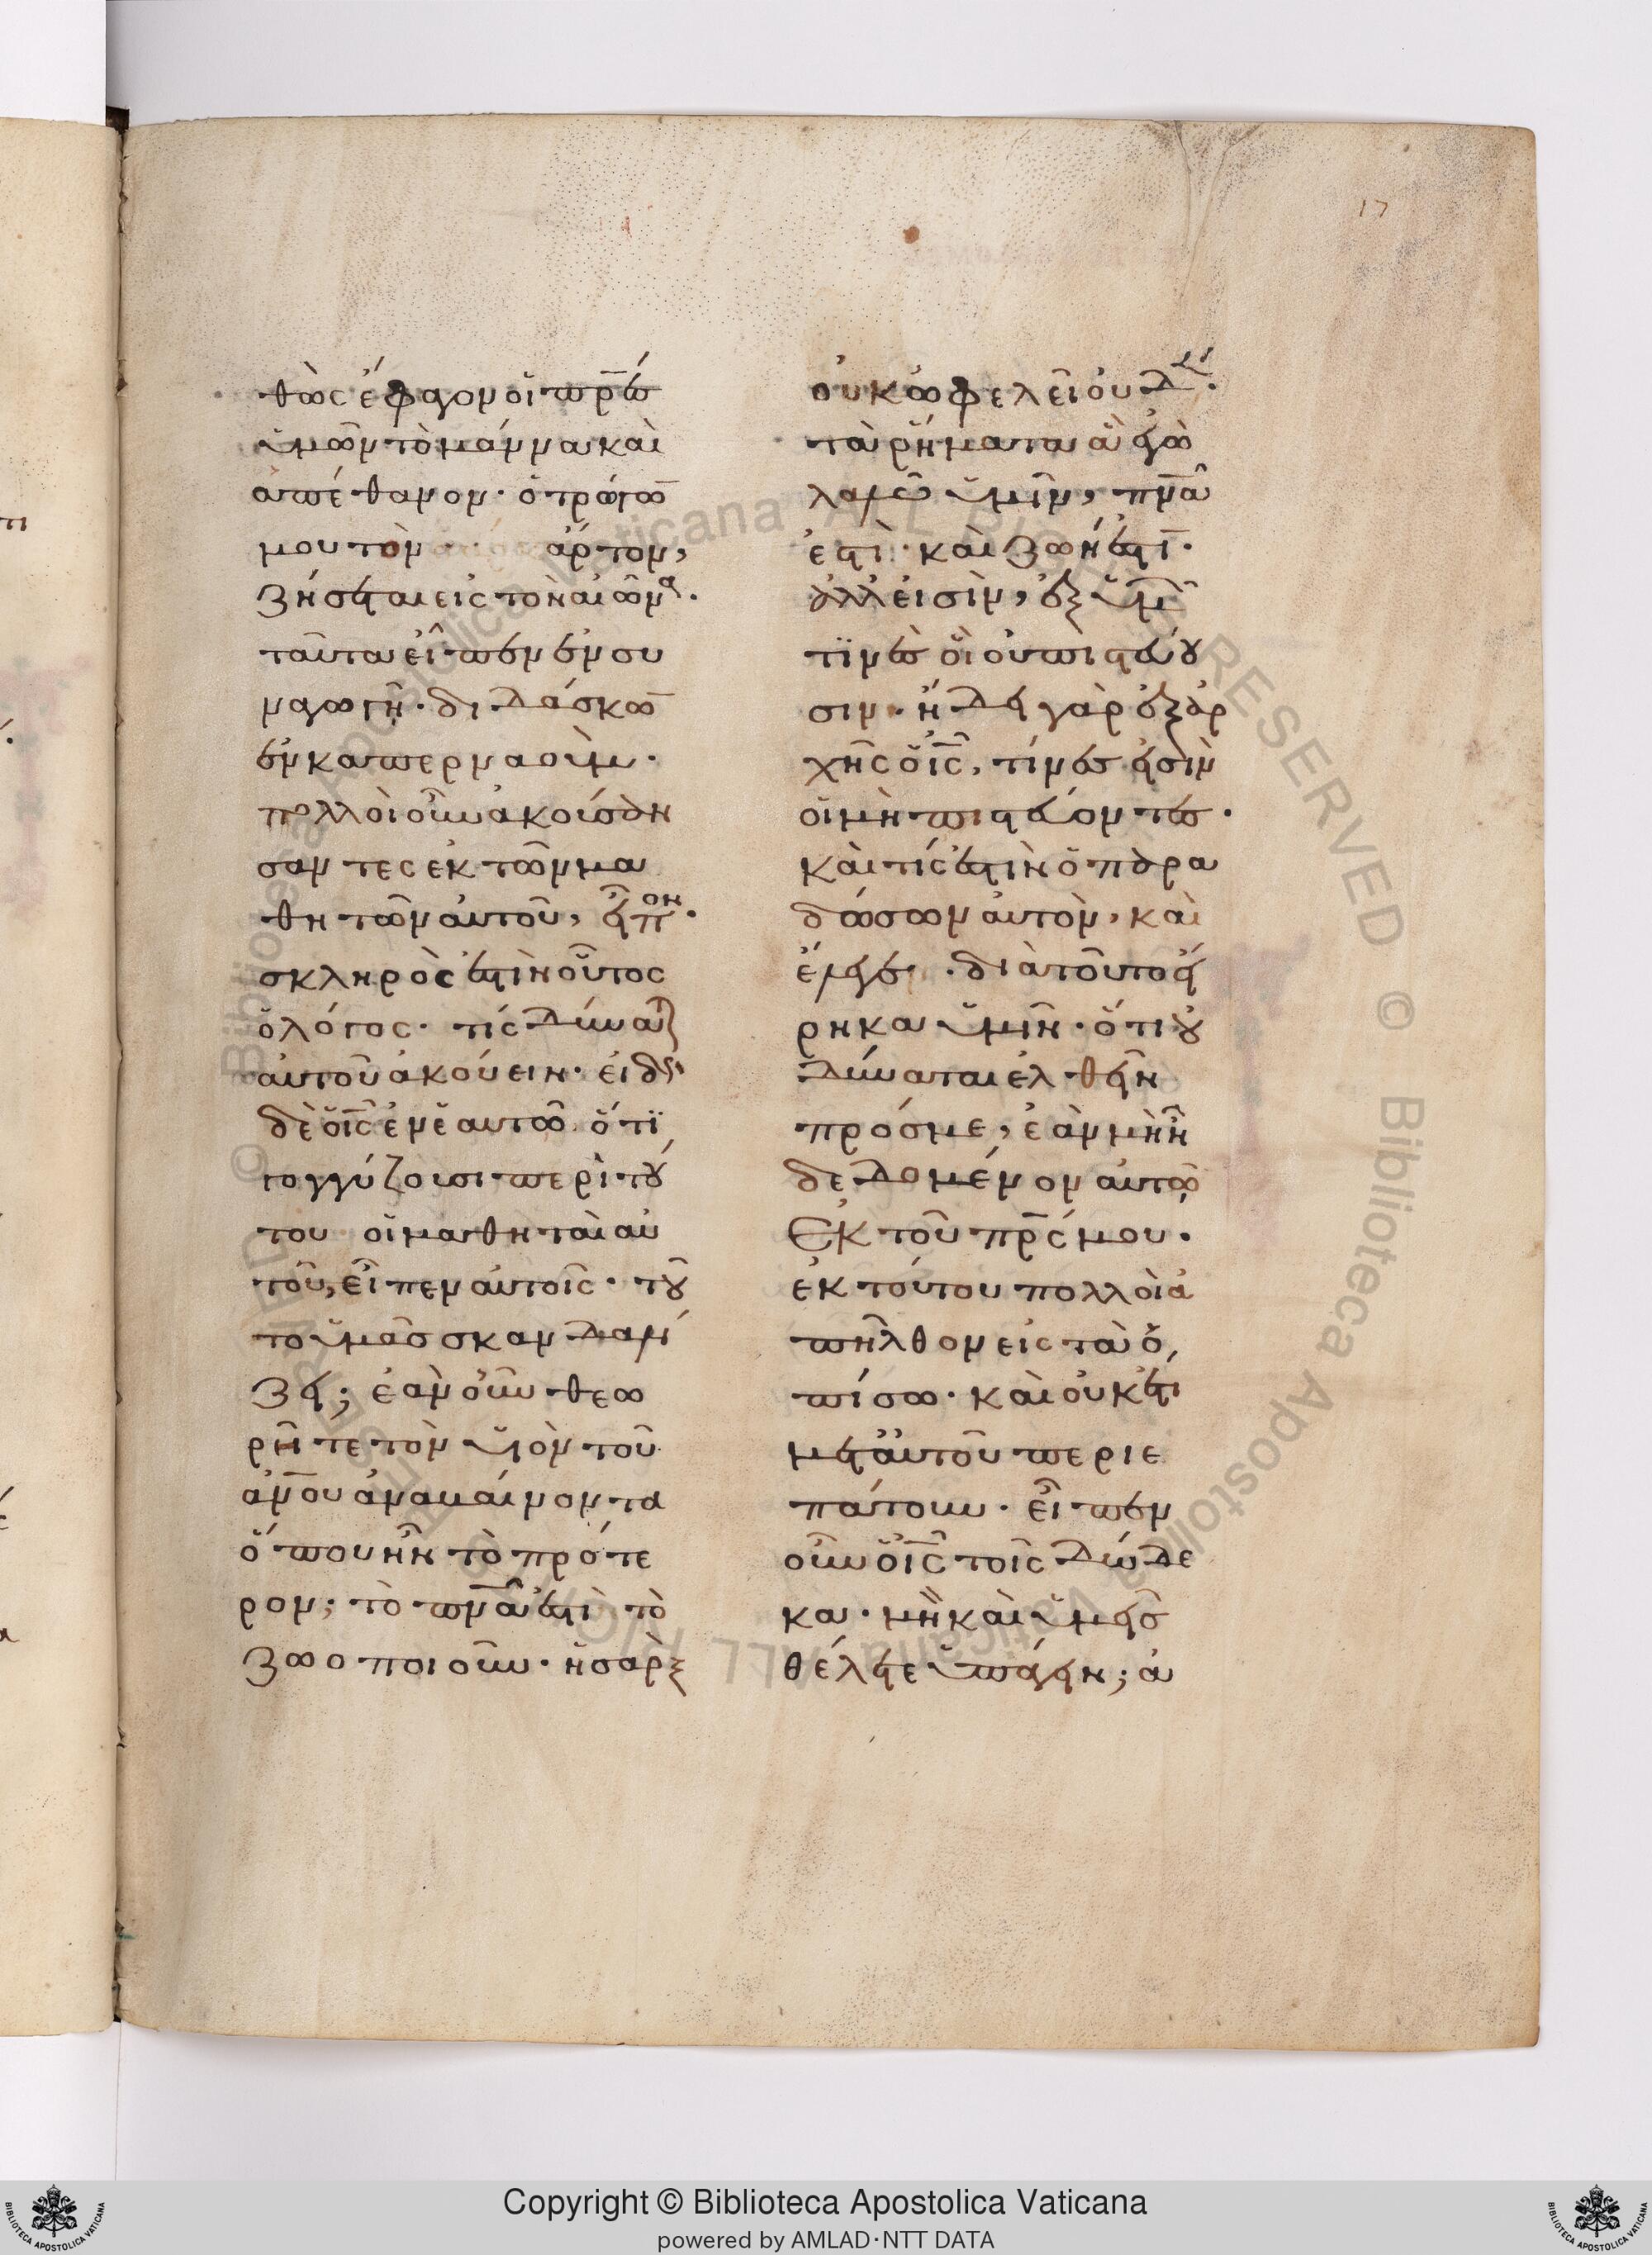 17
θὼς ἔφαγον οἱ πρ̅ες
ὑμῶν τὸ μάννα καὶ
ἀπέθανον· ὁ τρώγω̅
μου τὸν ἄρτον,
ζήσεται εἰς τὸν αἰῶνα.
ταῦτα εἶπεν ἐν συ
ναγωγῆ· διδάσκω̅
ἐν καπερναούμ·
πολλοὶ οὖν ἀκούσαν
σαντες ἐκ τῶν μα
θητῶν αὐτοῦ, εἶπον·
σκληρός ἐστὶν οὗτος
ὁ λόγος· τίς δύναται
αὐτοῦ ἀκούειν· εἰδὼς
δὲ ὁ ι̅ς̅ ἐν ἑαυτῶ ὅτι
γογγύζουσι περὶ τού
του οἱ μαθηταὶ αὐ
τοῦ, εἶπεν αὐτοῖς· τοῦ
το ὑμᾶς σκανδαλί
ζει; ἐὰν οὖν θεω
ρῆτε τὸν υἱὸν τοῦ
ἀν̅ου ἀναβαίνοντα
ὅπου ἦν τὸ πρότε
ρον; τὸ πν̅α ἐστὶ τὸ
ζωοποιοῦν· ἡ σὰρξ
οὐκ ὠφελεῖ οὐδέν·
τὰ ῥήματα ἃ ἐγὼ
λαλῶ ὑμῖν, πν̅α
ἐστὶ· καὶ ζωή ἐστι̅·
ἀλλ εἰσὶν, ἐξ ὑμῶν
τινὲς οἳ οὐ πιστεύου
σιν· ἤδει γὰρ ἐξ ἀρ
χῆς ὁ ι̅ς̅, τίνες εἰσὶν
οἱ μὴ πιστεύοντες·
καὶ τίς ἐστὶν ὁ παρα
δώσων αὐτὸν, καὶ
ἔλεγε· διὰ τοῦτο εἴ
ρηκα ὑμῖν· ὅτι οὐ
δύναται ἐλθεῖν
πρός με, ἐὰν μὴ ἦ
δεδομένον αὐτῶ
Ἐκ τοῦ πρ̅ς μου·
ἐκ τούτου πολλοὶ ἀ
πῆλθον εἰς τὰ ὀ,
πίσω· καὶ οὐκέτι
μετ αὐτοῦ περιε
πάτουν· εἶπεν
οὖν ὁ ι̅ς̅ τοῖς δώδε
κα· μὴ καὶ ὑμεῖς
θέλετε ὑπάγειν; ἀ
Copyright © Biblioteca Apostolica Vaticana
powered by AMLAD·NTT DATA